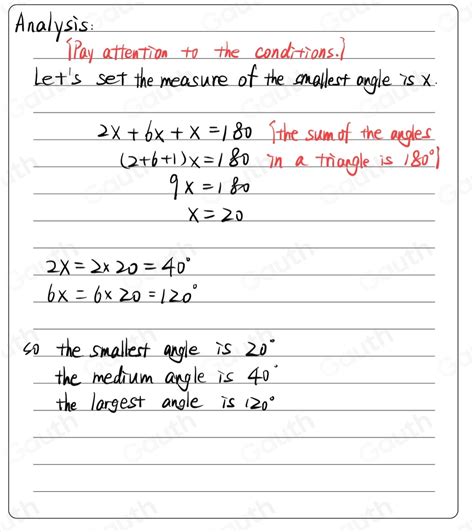 Analysis:
[Pay attention to the conditions.]
Let's set the measure of the smallest angle is x.
2x + 6x + x = 180 [the sum of the angles
(2+6+1)x = 180 in a triangle is 180°]
9x = 180
x = 20
2x = 2x20 = 40°
6x = 6x20 = 120°
so the smallest angle is 20°
the medium angle is 40°
the largest angle is 120°
Gauth